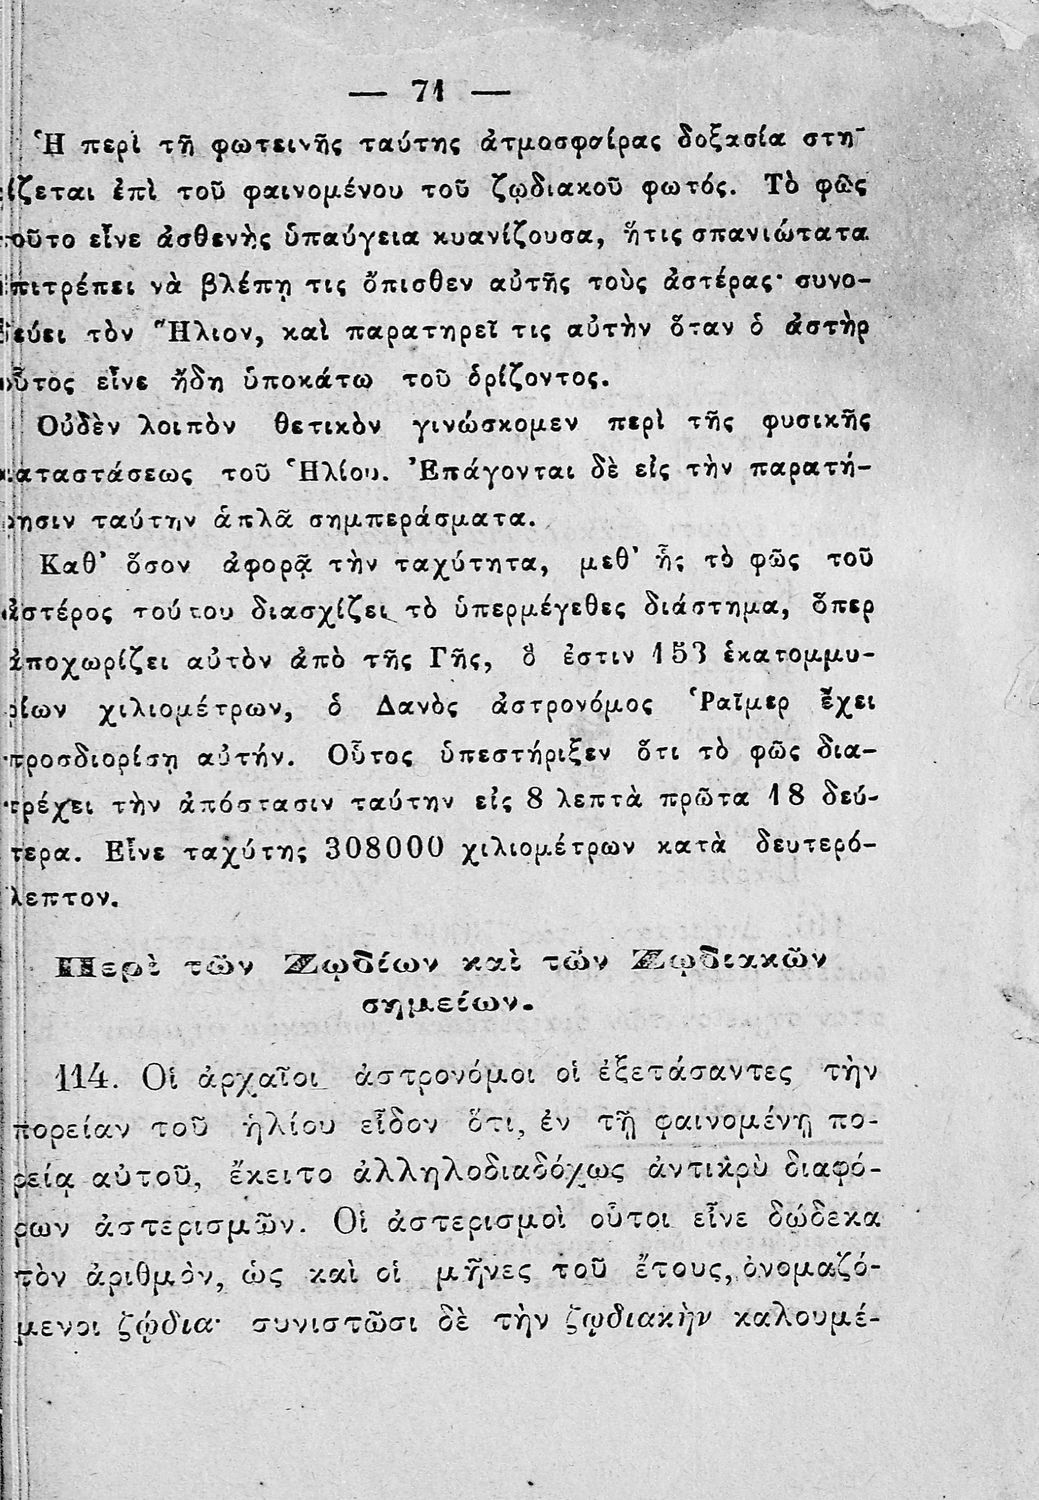 — 71 —
Ἡ περὶ τῆ φωτεινῆς ταύτης ἀτμοσφαίρας δοξασία στη-
ίζεται ἐπὶ τοῦ φαινομένου τοῦ ζῳδιακοῦ φωτός. Τὸ φῶς
τοῦτο εἶνε ἀσθενὴς ὑπαύγεια κυανίζουσα, ἥτις σπανιώτατα
ἐπιτρέπει νὰ βλέπῃ τις ὄπισθεν αὐτῆς τοὺς ἀστέρας· συνο-
δεύει τὸν Ἥλιον, καὶ παρατηρεῖ τις αὐτὴν ὅταν ὁ ἀστὴρ
οὗτος εἶνε ἤδη ὑποκάτω τοῦ ὁρίζοντος.
Οὐδὲν λοιπὸν θετικὸν γινώσκομεν περὶ τῆς φυσικῆς
καταστάσεως τοῦ Ἡλίου. Ἐπάγονται δὲ εἰς τὴν παρατή-
ρησιν ταύτην ἁπλᾶ σημπεράσματα.
Καθ' ὅσον ἀφορᾷ τὴν ταχύτητα, μεθ' ἧς τὸ φῶς τοῦ
ἀστέρος τούτου διασχίζει τὸ ὑπερμέγεθες διάστημα, ὅπερ
ἀποχωρίζει αὐτὸν ἀπὸ τῆς Γῆς, ὅ ἐστιν 153 ἑκατομμυ-
ρίων χιλιομέτρων, ὁ Δανὸς ἀστρονόμος Ῥαῖμερ ἔχει
προσδιορίσῃ αὐτήν. Οὗτος ὑπεστήριξεν ὅτι τὸ φῶς δια-
τρέχει τὴν ἀπόστασιν ταύτην εἰς 8 λεπτὰ πρῶτα 18 δεύ-
τερα. Εἶνε ταχύτης 308000 χιλιομέτρων κατὰ δευτερό-
λεπτον.
Περὶ τῶν Ζῳδίων καὶ τῶν Ζῳδιακῶν
σημείων.
114. Οἱ ἀρχαῖοι ἀστρονόμοι οἱ ἐξετάσαντες τὴν
πορείαν τοῦ ἡλίου εἶδον ὅτι, ἐν τῇ φαινομένῃ πο-
ρείᾳ αὐτοῦ, ἔκειτο ἀλληλοδιαδόχως ἀντικρὺ διαφό-
ρων ἀστερισμῶν. Οἱ ἀστερισμοὶ οὗτοι εἶνε δώδεκα
τὸν ἀριθμὸν, ὡς καὶ οἱ μῆνες τοῦ ἔτους, ὀνομαζό-
μενοι ζῴδια· συνιστῶσι δὲ τὴν ζῳδιακὴν καλουμέ-